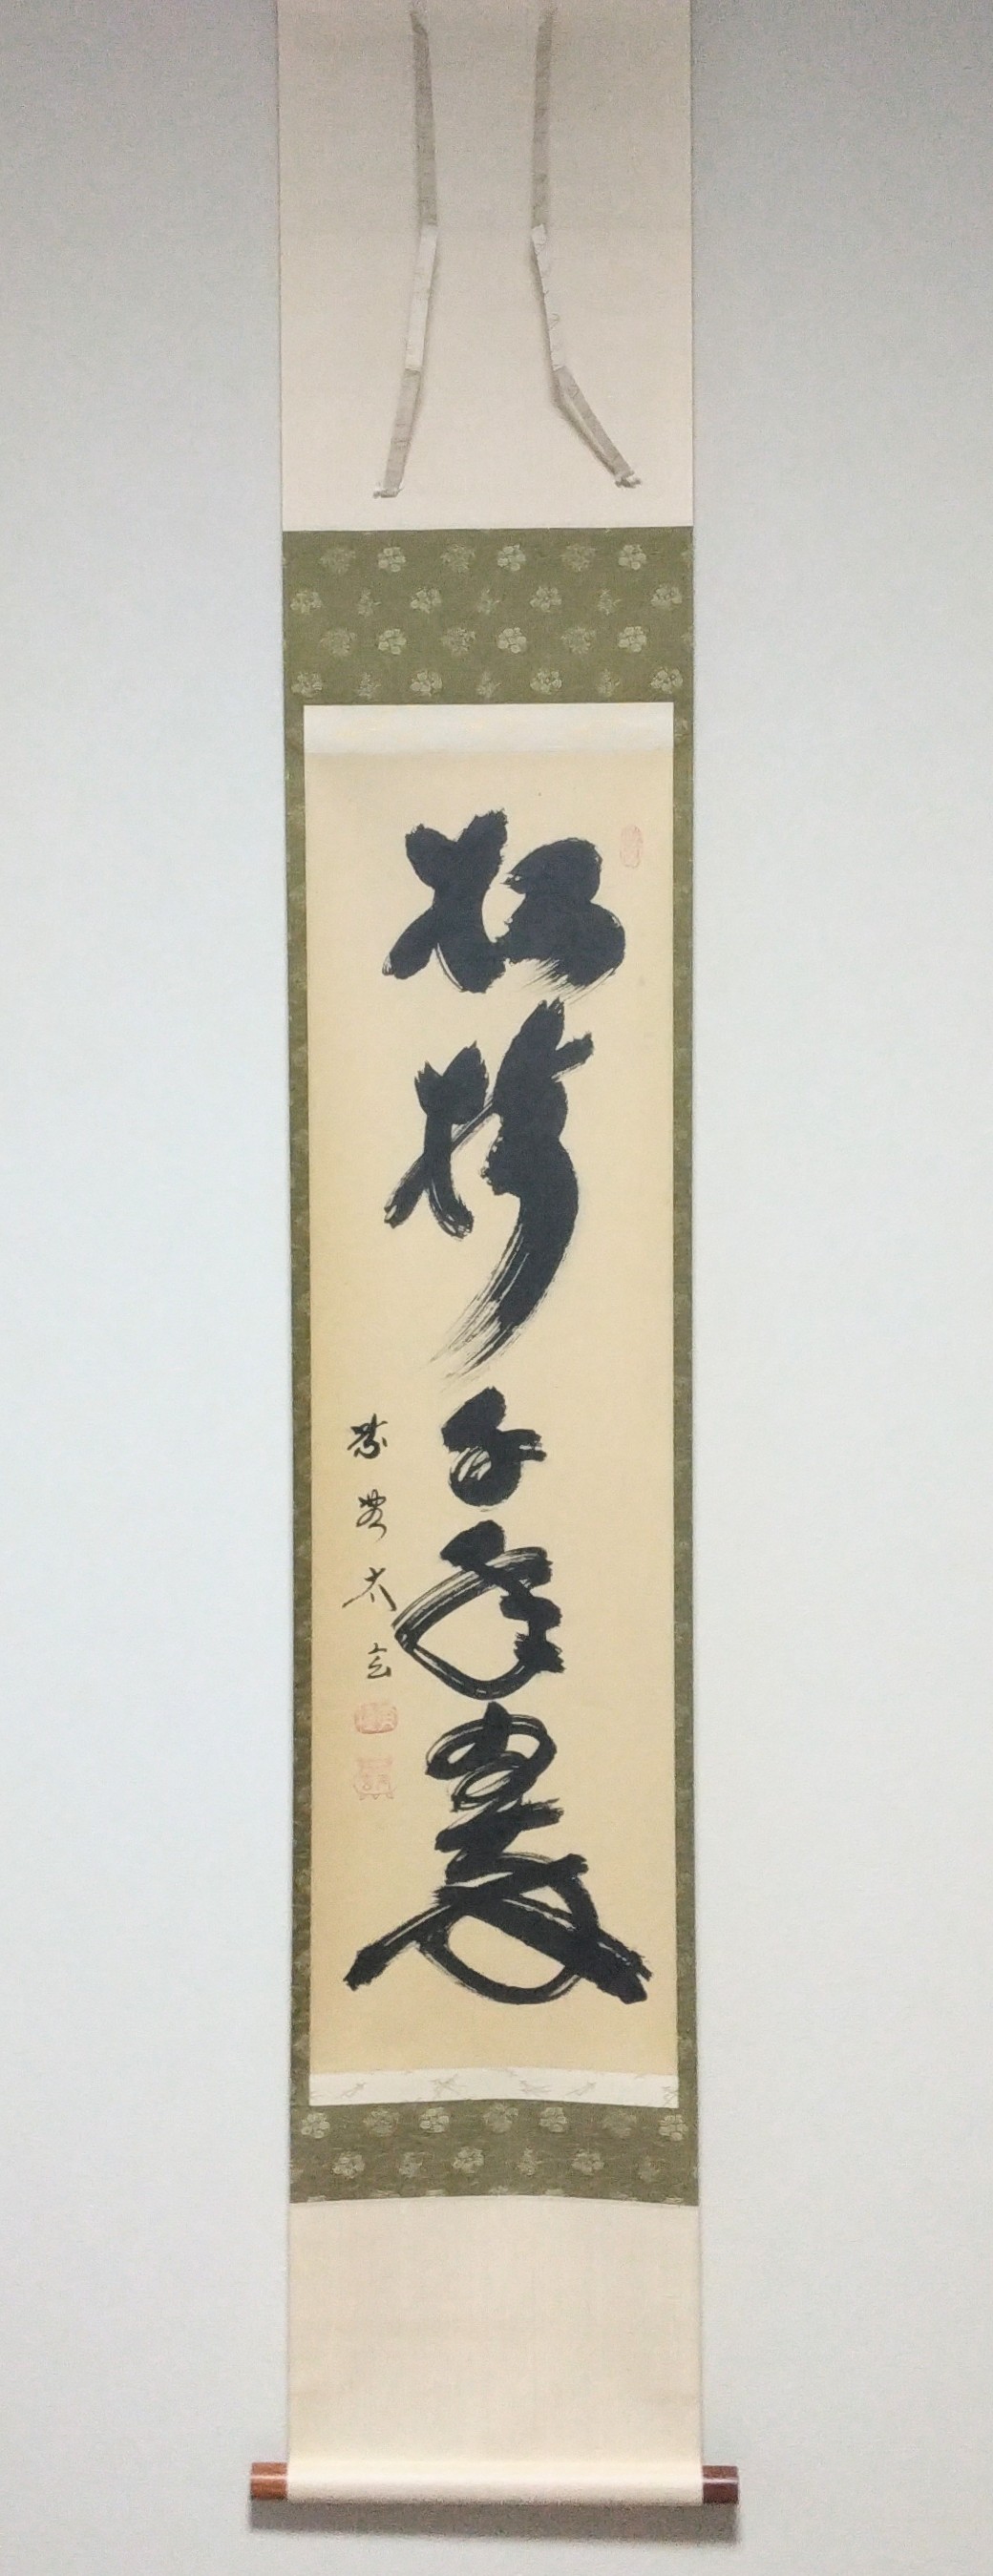 松樹千年翠
紫野太玄